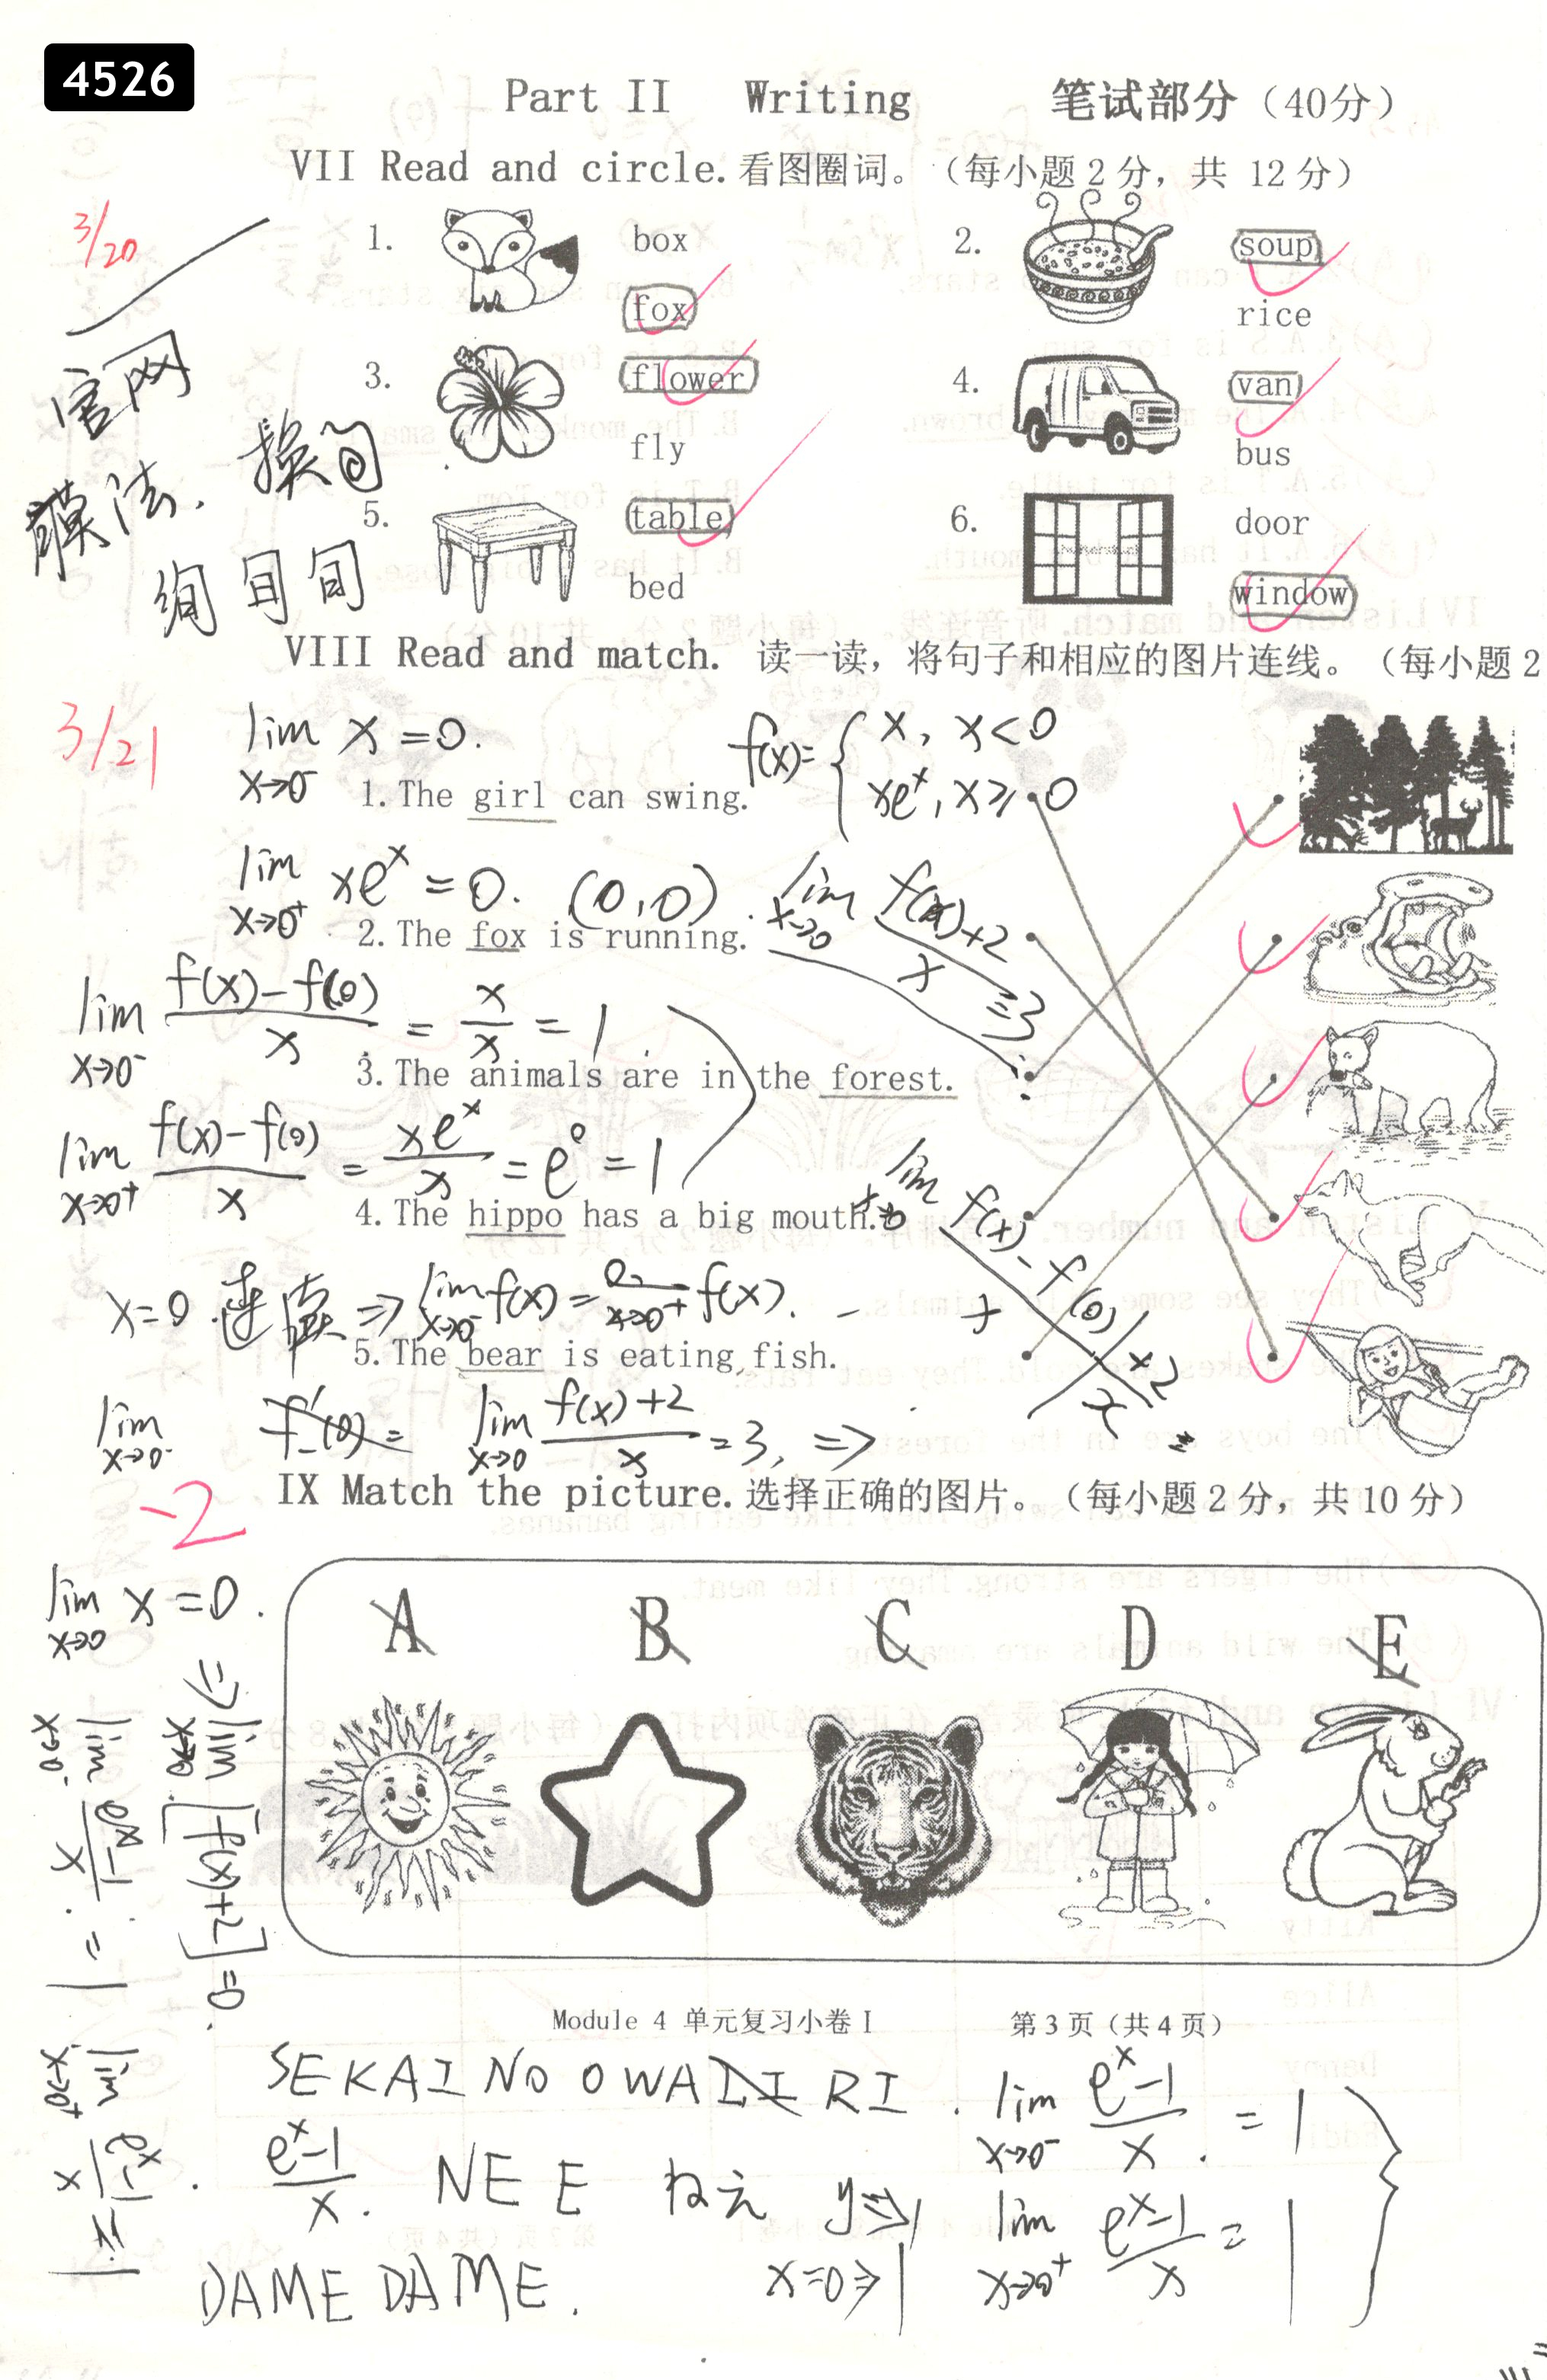 4526
Part II Writing 笔试部分（40分）
VII Read and circle. 看图圈词。（每小题 2 分，共 12 分）
3/20
1. box
fox
2. soup
rice
3. flower
fly
4. van
bus
5. table
bed
6. door
window
官网
换
VIII Read and match. 读一读，将句子和相应的图片连线。（每小题 2
3/21
lim x→0⁻ x = 0.
f(x)= { x, x<0
xeˣ, x≥0
1. The girl can swing.
lim x→0⁺ xeˣ = 0. (0,0).
lim x→0 f(x)+2 / x = 3
2. The fox is running.
lim x→0⁻ f(x)-f(0) / x = x/x = 1
3. The animals are in the forest.
lim x→0⁺ f(x)-f(0) / x = xeˣ/x = e⁰ = 1
4. The hippo has a big mouth.
x=0 连续 ⇒ lim x→0⁻ f(x) = x→0⁺ f(x).
5. The bear is eating fish.
lim x→0⁻ f'₋(0) = lim x→0 f(x)+2 / x = 3, ⇒
-2
IX Match the picture. 选择正确的图片。（每小题 2 分，共 10 分）
lim x→0 x = 0.
⇒ lim x→0 [f(x)+2] = 0.
lim x→0⁻ eˣ-1 / x = 1
lim x→0⁺ eˣ-1 / x = 1
A B C D E
Module 4 单元复习小卷 I 第 3 页（共 4 页）
SEKAI NO OWARI.
lim x→0⁻ eˣ-1 / x = 1
eˣ-1 / x. NEE ねえ y⇒1
lim x→0⁺ eˣ-1 / x = 1
DAME DAME. x=0⇒1